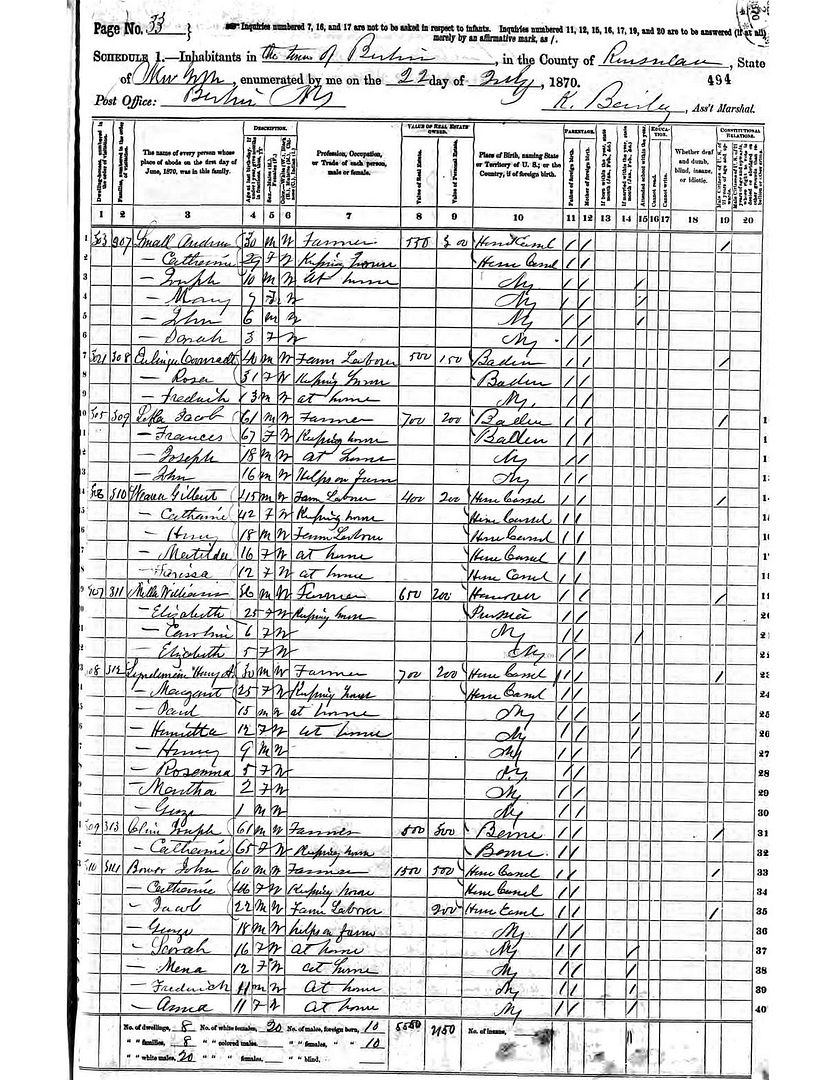 Page No. 33
Inquiries numbered 7, 16, and 17 are not to be asked in respect to infants. Inquiries numbered 11, 12, 15, 16, 17, 19, and 20 are to be answered (if at all)
merely by an affirmative mark, as /.
SCHEDULE 1.—Inhabitants in the town of Berlin, in the County of Rensselaer, State
of New York, enumerated by me on the 22 day of July, 1870. 494
Post Office: Berlin NY K. Bailey, Ass't Marshal.
DESCRIPTION. VALUE OF REAL ESTATE OWNED. PARENTAGE. EDUCATION. CONSTITUTIONAL RELATIONS.
Dwelling-houses, numbered in the order of visitation. Families, numbered in the order of visitation. The name of every person whose place of abode on the first day of June, 1870, was in this family. Profession, Occupation, or Trade of each person, male or female. Value of Real Estate. Value of Personal Estate. Place of Birth, naming State or Territory of U. S.; or the Country, if of foreign birth. Father of foreign birth. Mother of foreign birth. Attended school within the year. Cannot read. Cannot write. Whether deaf and dumb, blind, insane, or idiotic.
1 2 3 4 5 6 7 8 9 10 11 12 13 14 15 16 17 18 19 20
1 303 307 Small Andrew 30 M W Farmer 550 300 Hesse Cassel / / /
2 — Catherine 29 F W Keeping house Hesse Cassel / /
3 — Joseph 10 M W At home NY / / /
4 — Mary 7 F W NY / / /
5 — John 6 M W NY / / /
6 — Sarah 3 F W NY / /
7 308 Conradt 40 M W Farm Laborer 500 150 Baden / / /
8 — Rosa 31 F W Keeping house Baden / /
9 — Fredrick 13 M W at home NY / /
10 305 309 Jacob 61 M W Farmer 700 200 Baden / / /
11 — Frances 67 F W Keeping house Baden / /
12 — Joseph 18 M W at home NY / /
13 — John 16 M W Helps on farm NY / /
14 310 Weaver Gilbert 45 M W Farm Laborer 400 200 Hesse Cassel / / /
15 — Catharine 42 F W Keeping house Hesse Cassel / /
16 — Henry 18 M W Farm Laborer Hesse Cassel / /
17 — Matilda 16 F W at home Hesse Cassel / /
18 — 12 F W at home Hesse Cassel / /
19 307 311 Miller William 36 M W Farmer 650 200 Hanover / / /
20 — Elizabeth 25 F W Keeping house Prussia / /
21 — Caroline 6 F W NY / / /
22 — Elizabeth 5 F W NY / /
23 308 312 Henry A. 30 M W Farmer 700 200 Hesse Cassel / / /
24 — Margaret 25 F W Keeping house Hesse Cassel / /
25 — Paul 15 M W at home NY / / /
26 — Henrietta 12 F W at home NY / / /
27 — Henry 9 M W NY / / /
28 — Rosemma 5 F W NY / /
29 Martha 2 F W NY / /
30 — George 1 M W NY / /
31 309 313 Joseph 61 M W Farmer 500 300 Berne / / /
32 — Catharine 65 F W Keeping house Berne / /
33 310 314 Bower John 60 M W Farmer 1500 500 Hesse Cassel / / /
34 — Catharine 46 F W Keeping house Hesse Cassel / /
35 — Jacob 22 M W Farm Laborer 200 Hesse Cassel / / /
36 — George 18 M W helps on farm NY / /
37 — Sarah 16 F W at home NY / / /
38 — Mena 12 F W at home NY / / /
39 — Fredrick 11 M W At home NY / / /
40 — Anna 11 F W At home NY / / /
No. of dwellings, 8 No. of white females, 20 No. of males, foreign born, 10 5550 2150 No. of insane,
" " families, 8 " " colored males, " " females, " " 10
" " white males, 20 " " " females, " " blind,